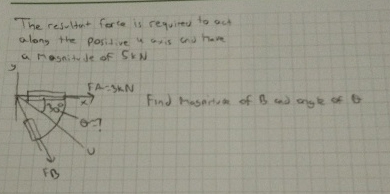 The resultant force is required to act
along the positive u axis and have
a magnitude of 5kN
y
FA=3kN
x
30°
Find magnitude of B and angle of θ
θ=?
u
FB